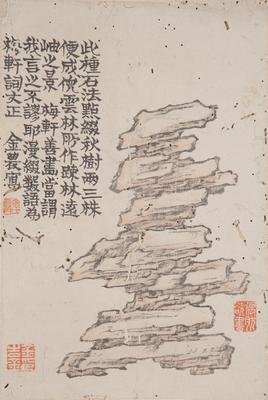 此種石法點綴秋樹兩三株
便成倪雲林所作踈林遠
岫之景 梅軒善畫當謂
我言之不謬耶漫綴數語為
梅軒詞丈正 金農寫